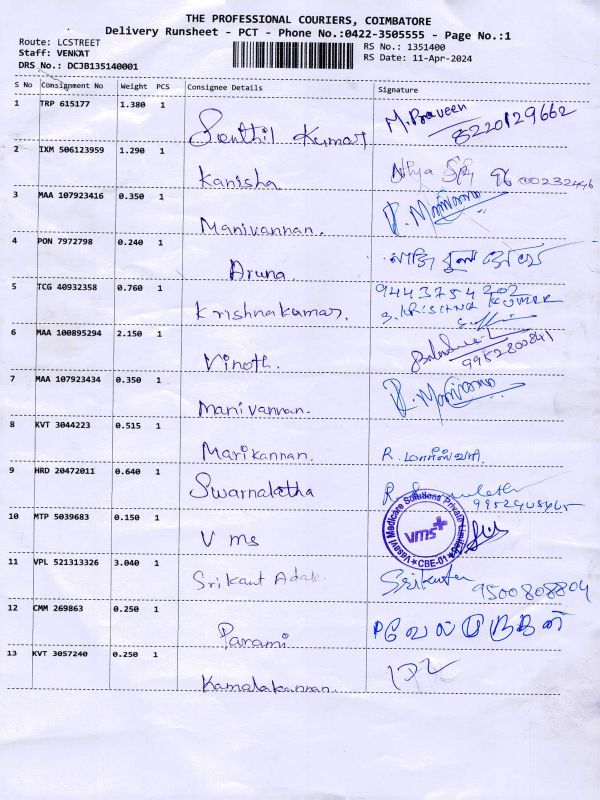 THE PROFESSIONAL COURIERS, COIMBATORE
Delivery Runsheet - PCT - Phone No.:0422-3505555 - Page No.:1
Route: LCSTREET
Staff: VENKAT
DRS No.: DCJB135140001
RS No.: 1351400
RS Date: 11-Apr-2024
S No Consignment No Weight PCS Consignee Details Signature
1 TRP 615177 1.380 1 Senthil Kumar M. Praveen
8220129662
2 IXM 506123959 1.290 1 Kanisha
3 MAA 107923416 0.350 1 Manivannan.
4 PON 7972798 0.240 1 Aruna
5 TCG 40932358 0.760 1 Krishnakumar. 9443754202
S. KRISHNA KUMAR
6 MAA 100895294 2.150 1 Vinoth.
9952800841
7 MAA 107923434 0.350 1 Manivannan.
8 KVT 3044223 0.515 1 Marikannan. R.
9 HRD 20472011 0.640 1 Swarnalatha
10 MTP 5039683 0.150 1 Vms
Vasavi Medicare Solutions Private Limited
vms+
★ CBE-01 ★
11 VPL 521313326 3.040 1 Srikant
9500808804
12 CMM 269863 0.250 1 Parami
13 KVT 3057240 0.250 1 Kamalakannan.